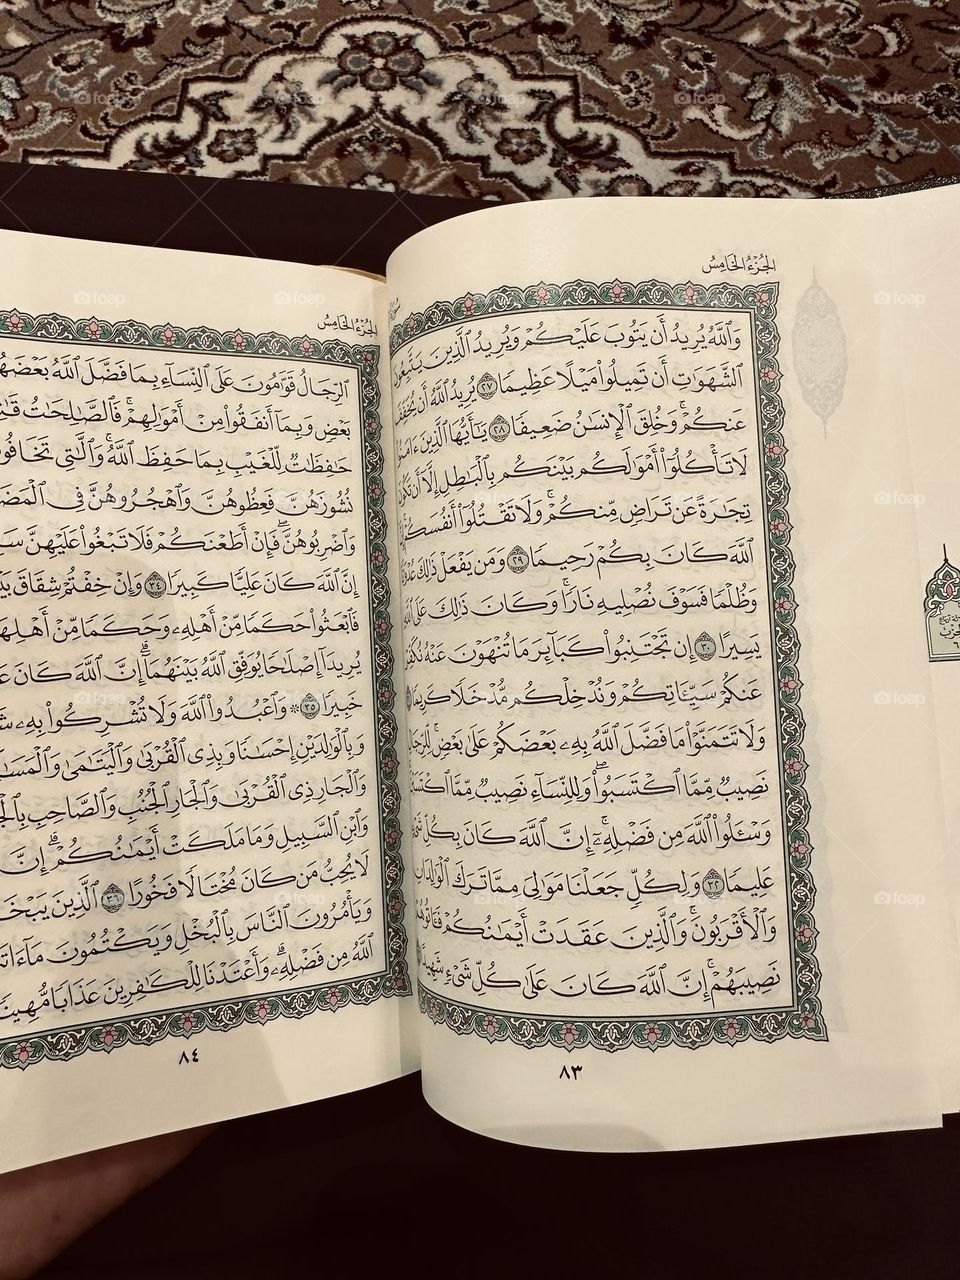 الجُزْءُ الخَامِسُ
وَٱللَّهُ يُرِيدُ أَن يَتُوبَ عَلَيْكُمْ وَيُرِيدُ ٱلَّذِينَ يَتَّبِعُونَ
ٱلشَّهَوَٰتِ أَن تَمِيلُوا۟ مَيْلًا عَظِيمًا ٢٧ يُرِيدُ ٱللَّهُ أَن يُخَفِّفَ
عَنكُمْ ۚ وَخُلِقَ ٱلْإِنسَٰنُ ضَعِيفًا ٢٨ يَٰٓأَيُّهَا ٱلَّذِينَ ءَامَنُوا۟
لَا تَأْكُلُوٓا۟ أَمْوَٰلَكُم بَيْنَكُم بِٱلْبَٰطِلِ إِلَّآ أَن تَكُونَ
تِجَٰرَةً عَن تَرَاضٍ مِّنكُمْ ۚ وَلَا تَقْتُلُوٓا۟ أَنفُسَكُمْ
ٱللَّهَ كَانَ بِكُمْ رَحِيمًا ٢٩ وَمَن يَفْعَلْ ذَٰلِكَ عُدْوَٰنًا
وَظُلْمًا فَسَوْفَ نُصْلِيهِ نَارًا ۚ وَكَانَ ذَٰلِكَ عَلَى ٱللَّهِ
يَسِيرًا ٣٠ إِن تَجْتَنِبُوا۟ كَبَآئِرَ مَا تُنْهَوْنَ عَنْهُ نُكَفِّرْ
عَنكُمْ سَيِّـَٔاتِكُمْ وَنُدْخِلْكُم مُّدْخَلًا كَرِيمًا
وَلَا تَتَمَنَّوْا۟ مَا فَضَّلَ ٱللَّهُ بِهِۦ بَعْضَكُمْ عَلَىٰ بَعْضٍ ۚ لِّلرِّجَالِ
نَصِيبٌ مِّمَّا ٱكْتَسَبُوا۟ ۖ وَلِلنِّسَآءِ نَصِيبٌ مِّمَّا ٱكْتَسَبْنَ
وَسْـَٔلُوا۟ ٱللَّهَ مِن فَضْلِهِۦٓ ۗ إِنَّ ٱللَّهَ كَانَ بِكُلِّ شَىْءٍ
عَلِيمًا ٣٢ وَلِكُلٍّ جَعَلْنَا مَوَٰلِىَ مِمَّا تَرَكَ ٱلْوَٰلِدَانِ
وَٱلْأَقْرَبُونَ ۚ وَٱلَّذِينَ عَقَدَتْ أَيْمَٰنُكُمْ فَـَٔاتُوهُمْ
نَصِيبَهُمْ ۚ إِنَّ ٱللَّهَ كَانَ عَلَىٰ كُلِّ شَىْءٍ شَهِيدًا
٨٣
الجُزْءُ الخَامِسُ
ٱلرِّجَالُ قَوَّٰمُونَ عَلَى ٱلنِّسَآءِ بِمَا فَضَّلَ ٱللَّهُ بَعْضَهُمْ
بَعْضٍ وَبِمَآ أَنفَقُوا۟ مِنْ أَمْوَٰلِهِمْ ۚ فَٱلصَّٰلِحَٰتُ
حَٰفِظَٰتٌ لِّلْغَيْبِ بِمَا حَفِظَ ٱللَّهُ ۚ وَٱلَّٰتِى تَخَافُونَ
نُشُوزَهُنَّ فَعِظُوهُنَّ وَٱهْجُرُوهُنَّ فِى
وَٱضْرِبُوهُنَّ ۖ فَإِنْ أَطَعْنَكُمْ فَلَا تَبْغُوا۟ عَلَيْهِنَّ
إِنَّ ٱللَّهَ كَانَ عَلِيًّا كَبِيرًا ٣٤ وَإِنْ خِفْتُمْ شِقَاقَ
فَٱبْعَثُوا۟ حَكَمًا مِّنْ أَهْلِهِۦ وَحَكَمًا مِّنْ أَهْلِهَآ
يُرِيدَآ إِصْلَٰحًا يُوَفِّقِ ٱللَّهُ بَيْنَهُمَآ ۗ إِنَّ ٱللَّهَ كَانَ
خَبِيرًا ٣٥ ۞ وَٱعْبُدُوا۟ ٱللَّهَ وَلَا تُشْرِكُوا۟ بِهِۦ
وَبِٱلْوَٰلِدَيْنِ إِحْسَٰنًا وَبِذِى ٱلْقُرْبَىٰ وَٱلْيَتَٰمَىٰ
وَٱلْجَارِ ذِى ٱلْقُرْبَىٰ وَٱلْجَارِ ٱلْجُنُبِ وَٱلصَّاحِبِ
وَٱبْنِ ٱلسَّبِيلِ وَمَا مَلَكَتْ أَيْمَٰنُكُمْ ۗ إِنَّ
لَا يُحِبُّ مَن كَانَ مُخْتَالًا فَخُورًا ٣٦ ٱلَّذِينَ
وَيَأْمُرُونَ ٱلنَّاسَ بِٱلْبُخْلِ وَيَكْتُمُونَ مَآ
ٱللَّهُ مِن فَضْلِهِۦ ۗ وَأَعْتَدْنَا لِلْكَٰفِرِينَ عَذَابًا مُّهِينًا
٨٤